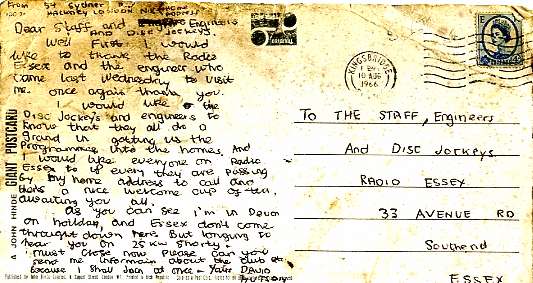 From 54 Sydney
HACKNEY LONDON
Dear Staff and Engineers
AND DISC JOCKEYS
Well First I would
like to thank the Radio
Essex and the engineer who
came last Wednesday to visit
me. once again thank you.
I would like the
Disc Jockeys and engineers to
know that they all do a
grand in getting us the
Programmes into the homes. And
I would like everyone on Radio
Essex to if ever they are passing
by my home address to call and
there's a nice welcome cup of tea,
awaiting you all.
As you can see I'm in Devon
on holiday, and Essex don't come
throught down here. But longing to
hear you on 25 KW shortly.
must close now please can you
send me informain about the club etc
because I shall Join at once - Yours DAVID
A JOHN HINDE GIANT POSTCARD
ORIGINAL
KINGSBRIDGE
10 AUG
1966
To THE STAFF, Engineers
And DISC JOCKEYS
RADIO ESSEX
33 AVENUE RD
Southend
ESSEX